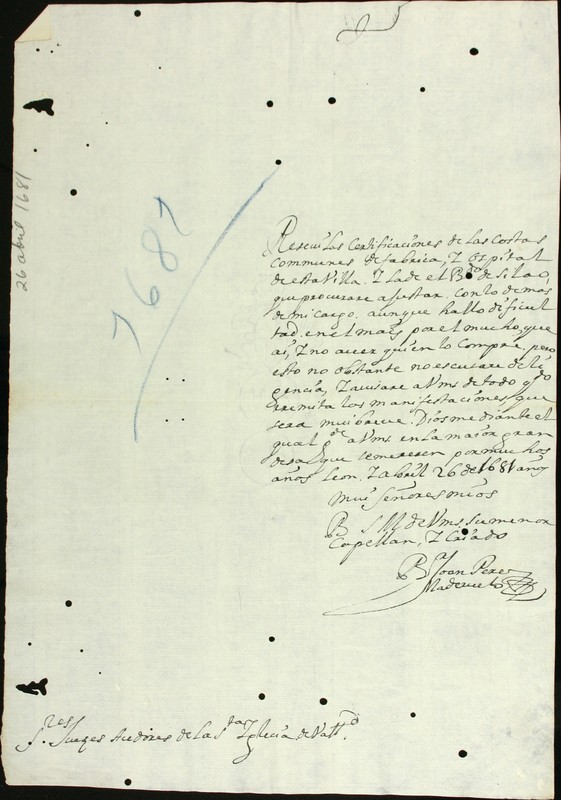 26 abril 1681
1681
Reseui las Certificaciones de las Costas
communes de fabrica, Y ospital
de esta Villa. Y la de el Bdo de Silao,
que procurare ajustar. con lo demas
de mi cargo. aunque hallo dificul
tad. en el maes por el mucho, que
ai, Y no auer quien lo Compre. pero
esto no obstante no escusare deli
gencia, Y auisare a Vms de todo qdo
rremita los manifestaciones, que
sera mui breue. Dios mediante el
qual gde a Vms. en la maior gran
desa que meresen por muchos
años Leon. Y abril 26 de 1681 años
Mui Señores mios
B S M de Vms. su menor
Capellan, Y Criado
Br Joan Perez
Sres Jueses Acdores de la Sta Iglecia de Valld.